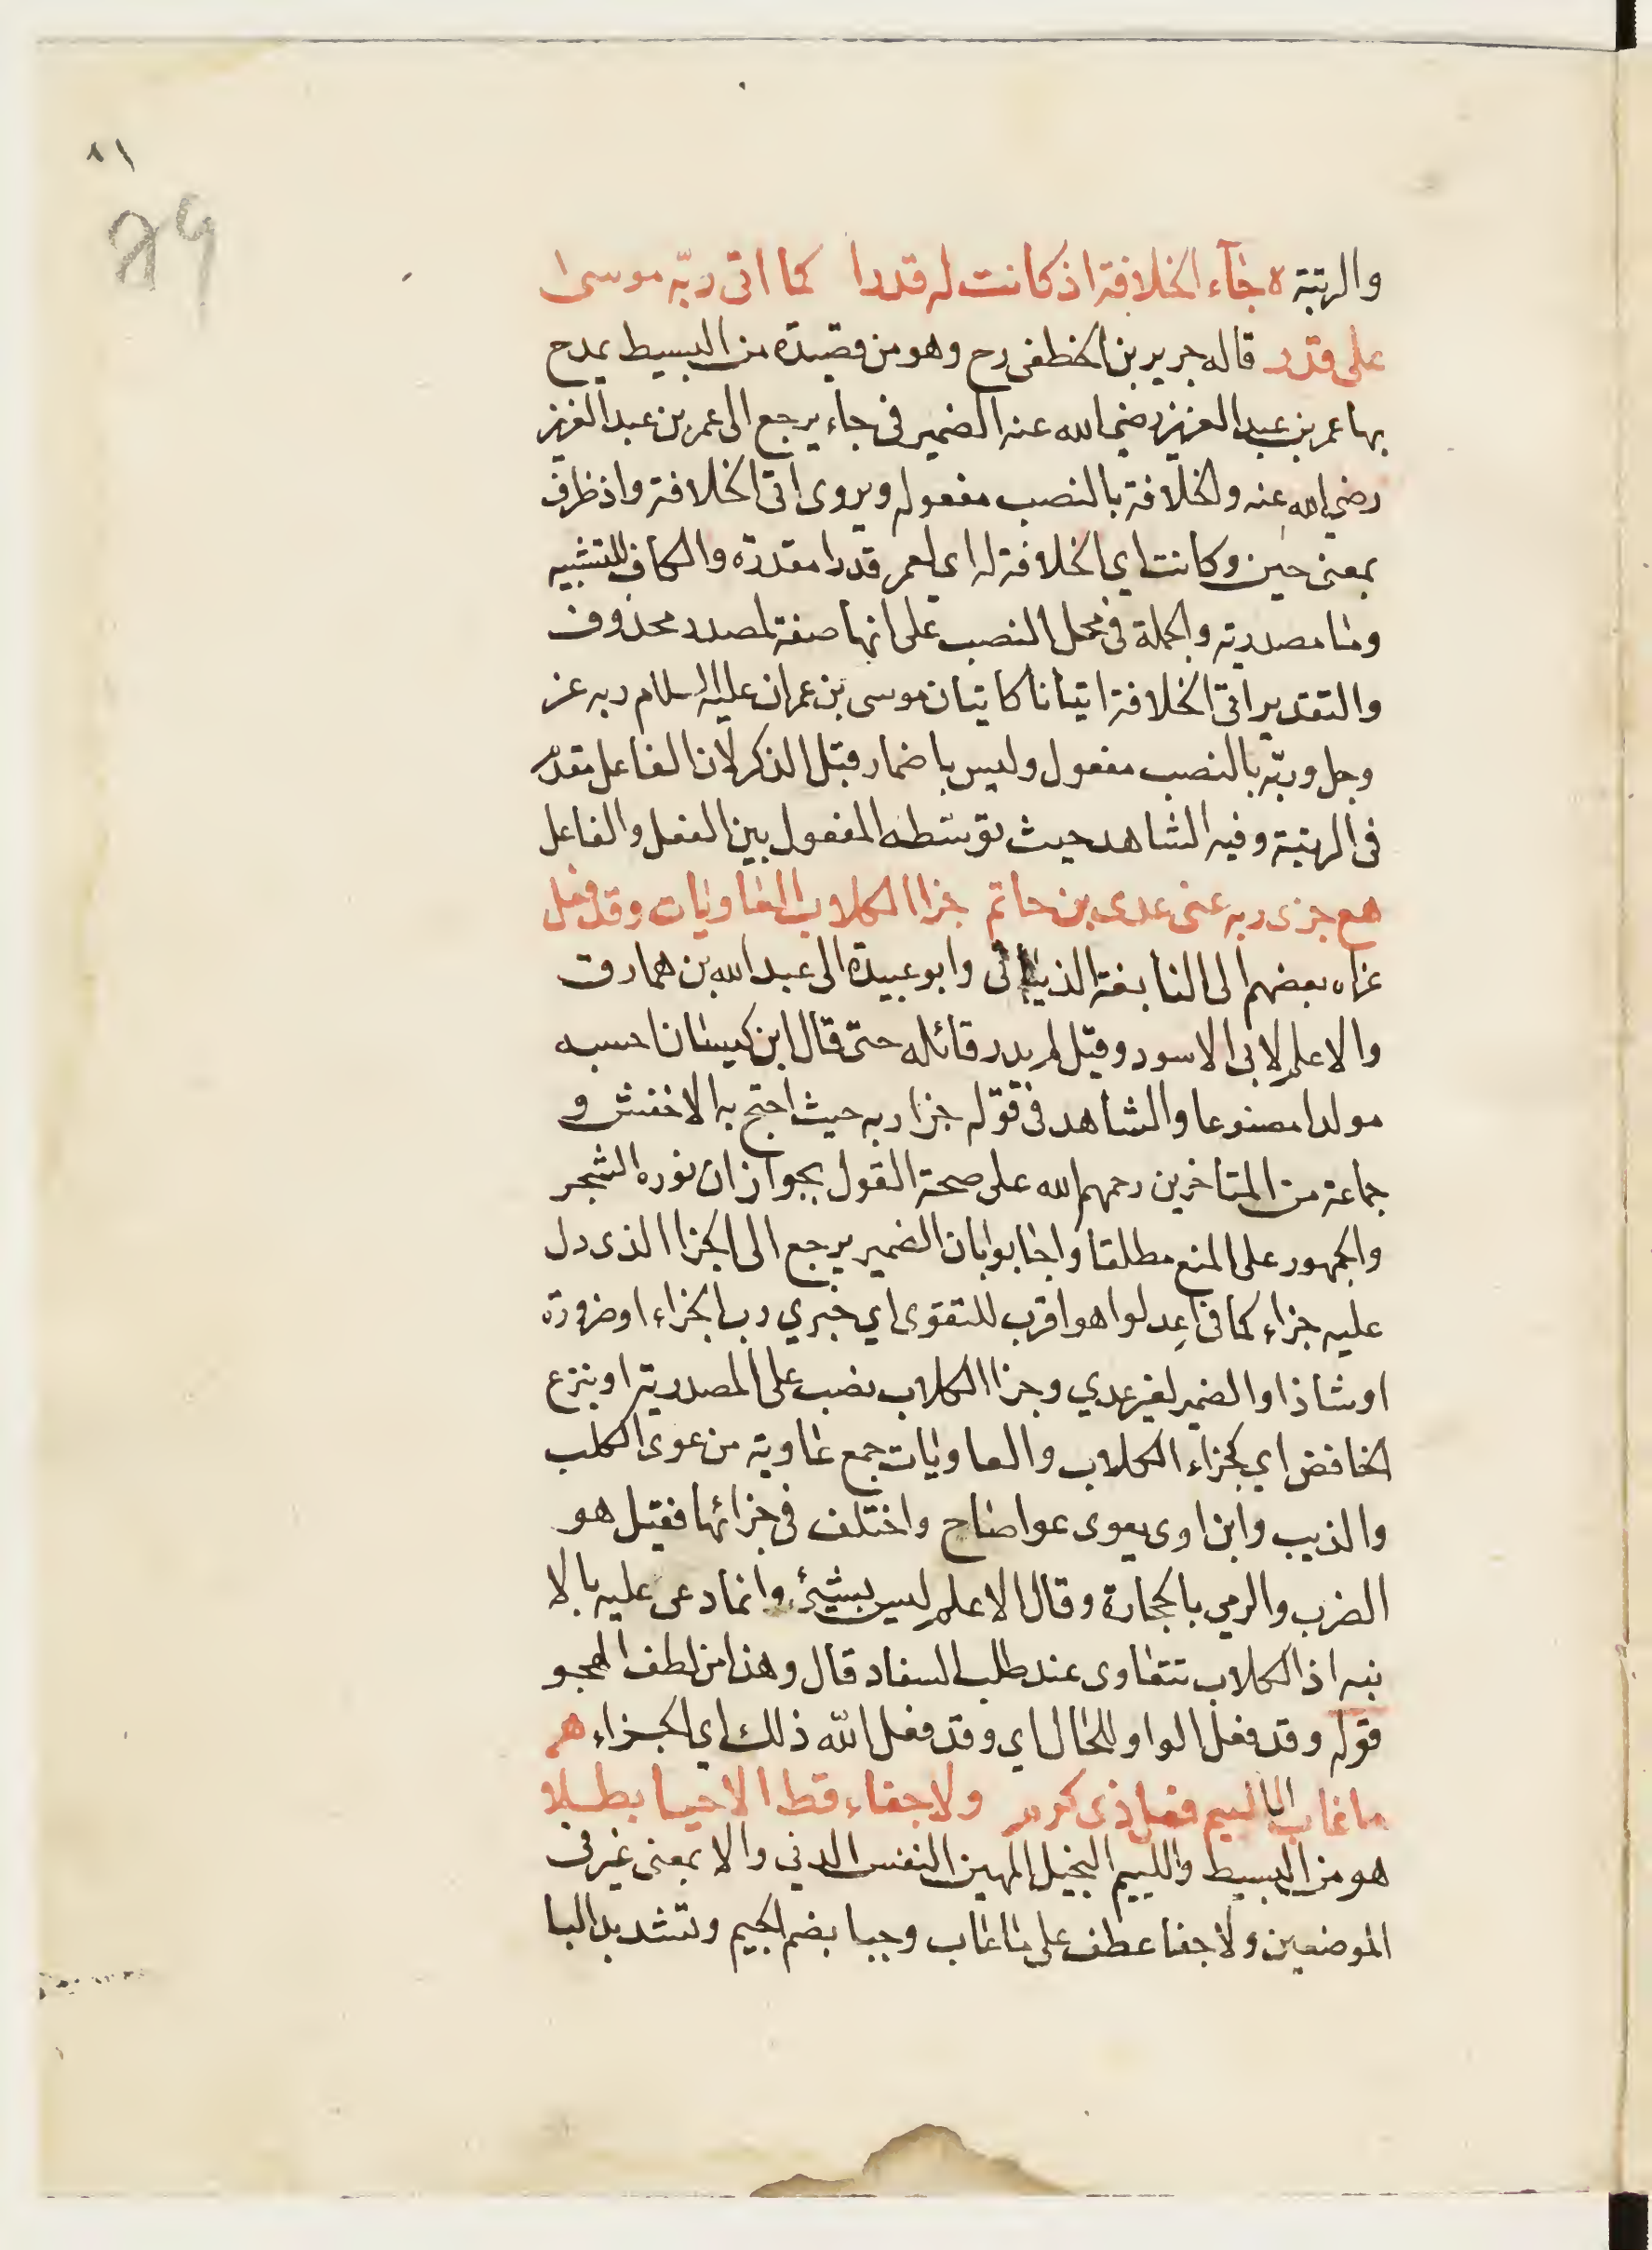 ٨١
89
والرتبة ه جآء الخلافة اذ كانت له قدرا كما اتى ربّه موسى
على قدر قاله جرير بن الخطفى رح وهو من قصيدة من البسيط يمدح
بها عمر بن عبد العزيز رضي الله عنه الضمير فى جاء يرجع الى عمر بن عبد العزيز
رضي الله عنه والخلافة بالنصب مفعوله ويروى اتى الخلافة واذ ظرف
بمعنى حين وكانت اي الخلافة له اى لعمر قدرا مقدرة والكاف للتشبيه
وما مصدرية والجملة فى محل النصب على انها صفة لمصدر محذوف
والتقدير اتى الخلافة اتيانا كاتيان موسى بن عمران عليه السلام ربه عز
وجل وربّه بالنصب مفعول وليس باضمار قبل الذكر لان الفاعل مقدم
فى الرتبة وفيه الشاهد حيث توسّط المفعول بين الفعل والفاعل
هع جزى ربه عنى عدى بن حاتم جزا الكلاب العاويات وقد فعل
عزاه بعضهم الى النابغة الذبيانى وابو عبيدة الى عبد الله بن همارق
والاعلم لابى الاسود وقيل لم يدر قائله حتى قال ابن كيسان احسبه
مولدا مصنوعا والشاهد فى قوله جزا ربه حيث احتج به الاخفش و
جماعة من المتاخرين رحمهم الله على صحة القول بجواز زان نوره الشجر
والجمهور على المنع مطلقا واجابوا بان الضمير يرجع الى الجزا الذى دل
عليه جزاء كما فى اعدلوا هو اقرب للتقوى اي جزي رب الجزاء او ضرورة
او شاذ او الضمير لغير عدي وجزا الكلاب نصب على المصدرية او بنزع
الخافض اي كجزاء الكلاب والعاويات جمع عاوية من عوى الكلب
والذيب وابن اوى يعوى عوا صاح واختلف فى جزائها فقيل هو
الضرب والرمي بالحجارة وقال الاعلم ليس بشيئ وانما دعى عليه بالا
بنه اذ الكلاب تتعاوى عند طلب السفاد قال وهذا من لطف الهجو
قوله وقد فعل الواو للحال اى وقد فعل الله ذلك اى الجزاء هم
ما عاب الا لئيم فعل ذى كرم ولا جفاء قط الا جبا بطلا
هو من البسيط واللئيم البخيل المهين النفس الدنى والا بمعنى غير فى
الموضعين ولا جفا عطف على ما عاب وجبا بضم الجيم وتشديد البا